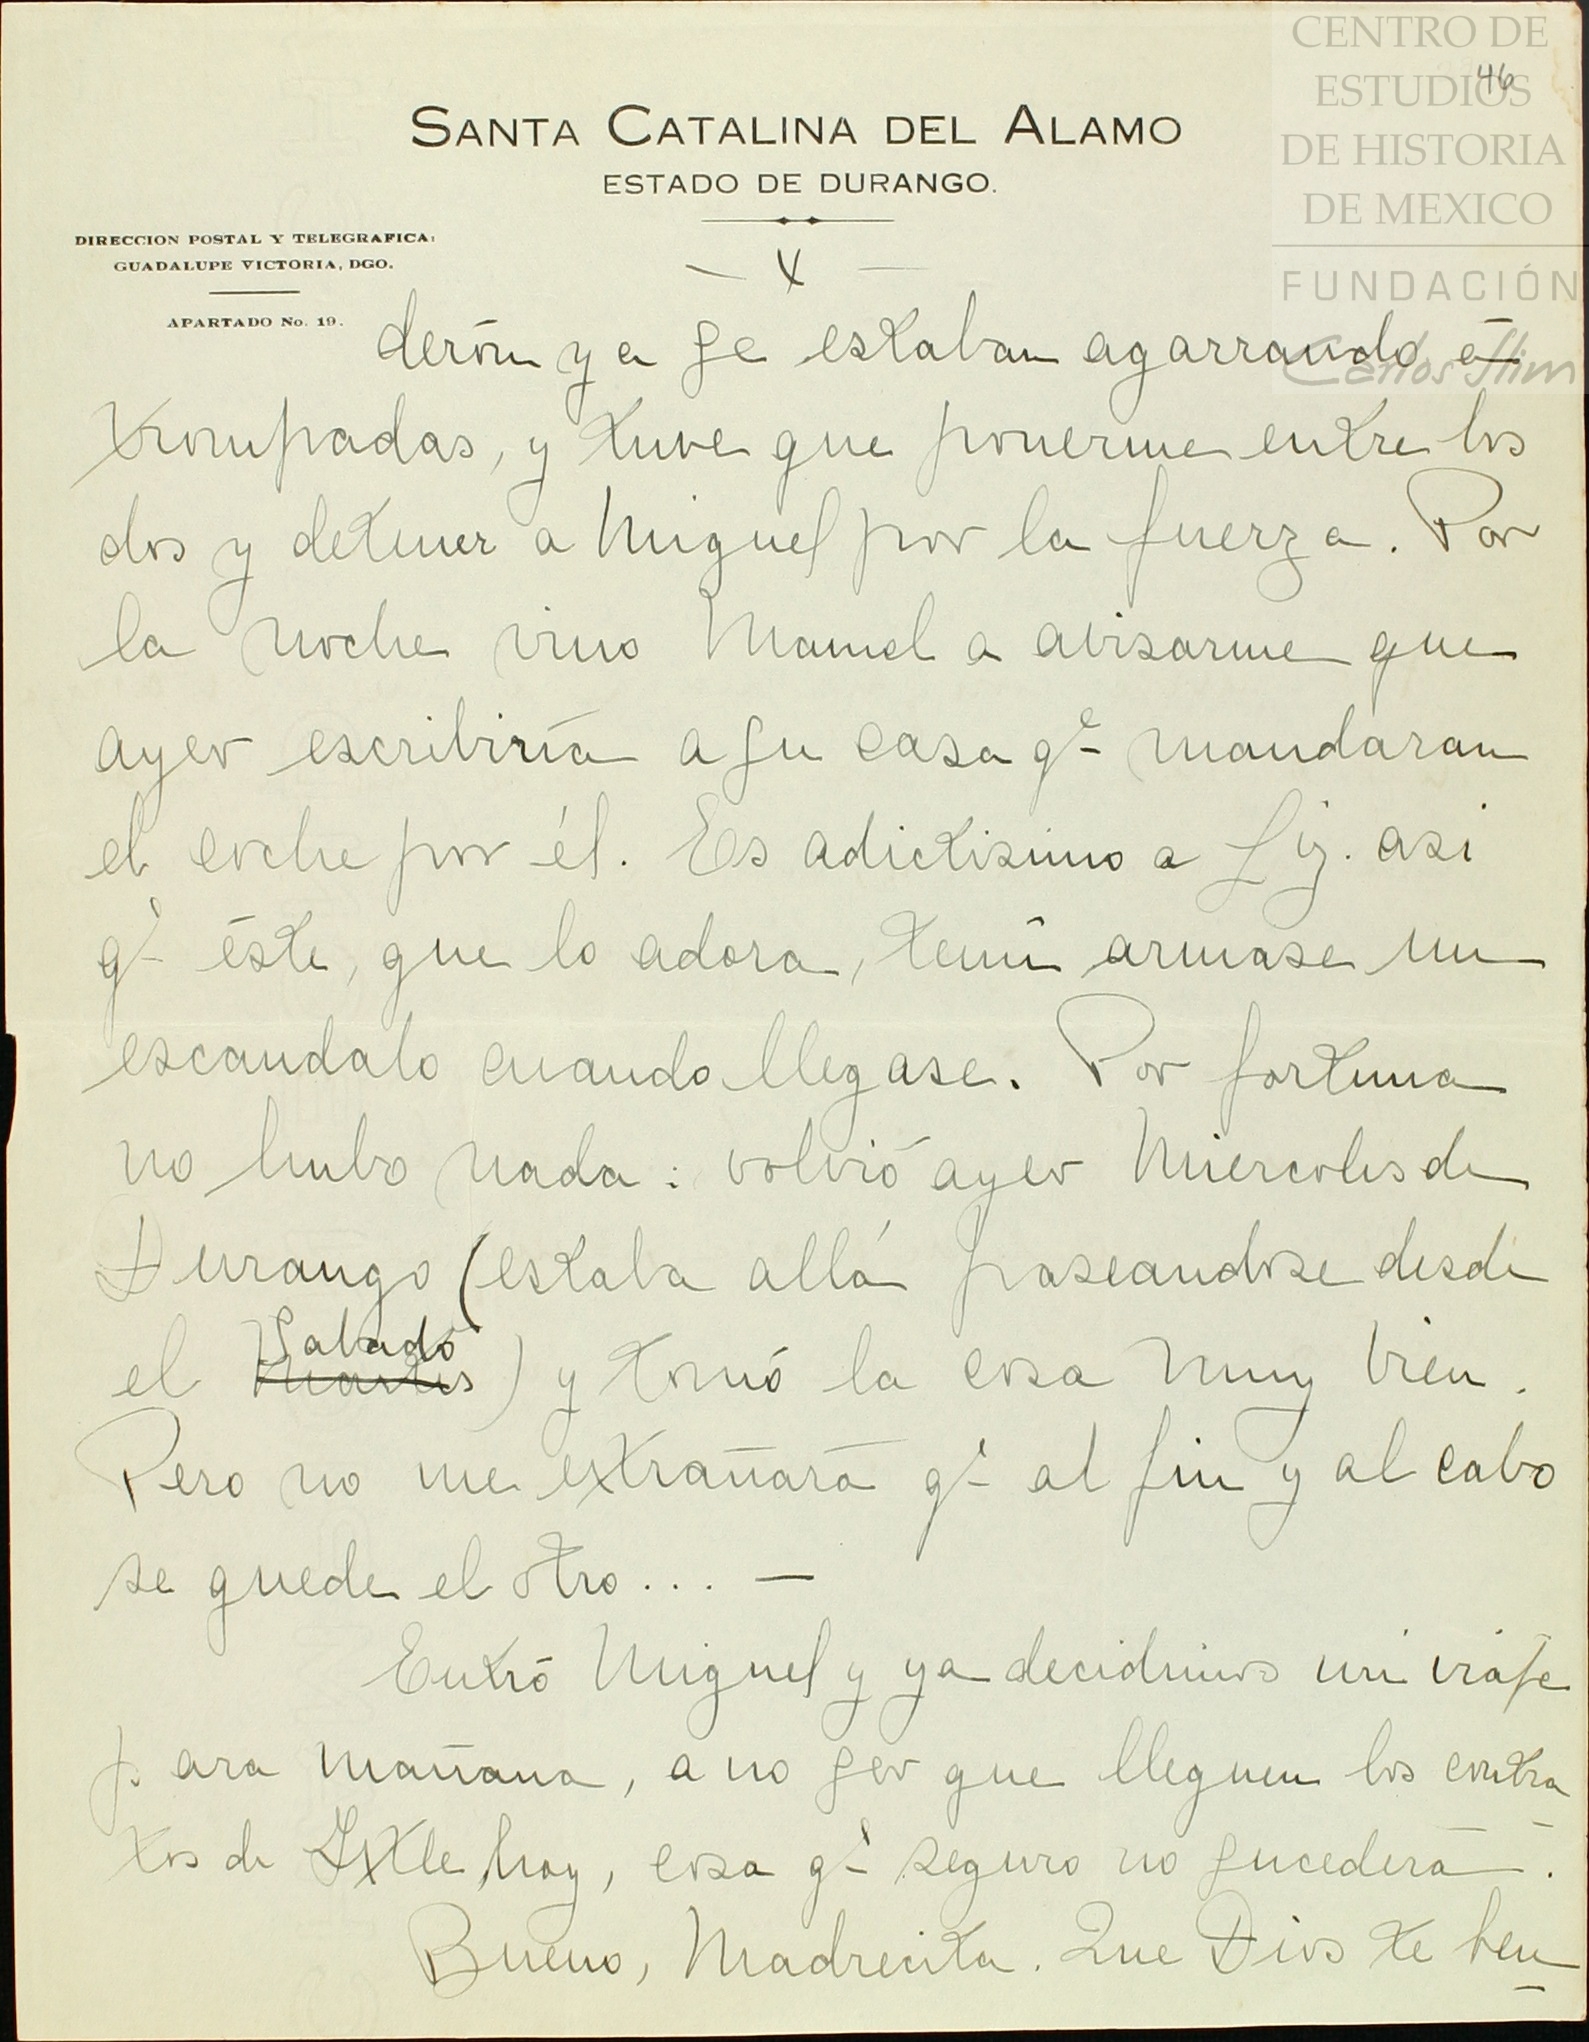 CENTRO DE
ESTUDIOS
DE HISTORIA
DE MEXICO
FUNDACIÓN
Carlos Slim
46
SANTA CATALINA DEL ALAMO
ESTADO DE DURANGO.
DIRECCION POSTAL Y TELEGRAFICA:
GUADALUPE VICTORIA, DGO.
APARTADO No. 19.
— X —
derón ya se estaban agarrando á
trompadas, y tuve que ponerme entre los
dos y detener a Miguel por la fuerza. Por
la noche vino Manuel a avisarme que
ayer escribiría a su casa qe mandaran
el coche por él. Es adictisimo a Liz. asi
qe éste, que lo adora, temí armase un
escandalo cuando llegase. Por fortuna
no hubo nada: volvió ayer Miercoles de
Durango (estaba allá paseandose desde
Sabado
el Martes) y tomó la cosa muy bien.
Pero no me extrañará qe al fin y al cabo
se quede el otro... —
Entró Miguel y ya decidimos mi viaje
para mañana, a no ser que lleguen los contra
tos de Ixtle hoy, cosa qe seguro no sucederá.
Bueno, Madrecita. Que Dios te ben